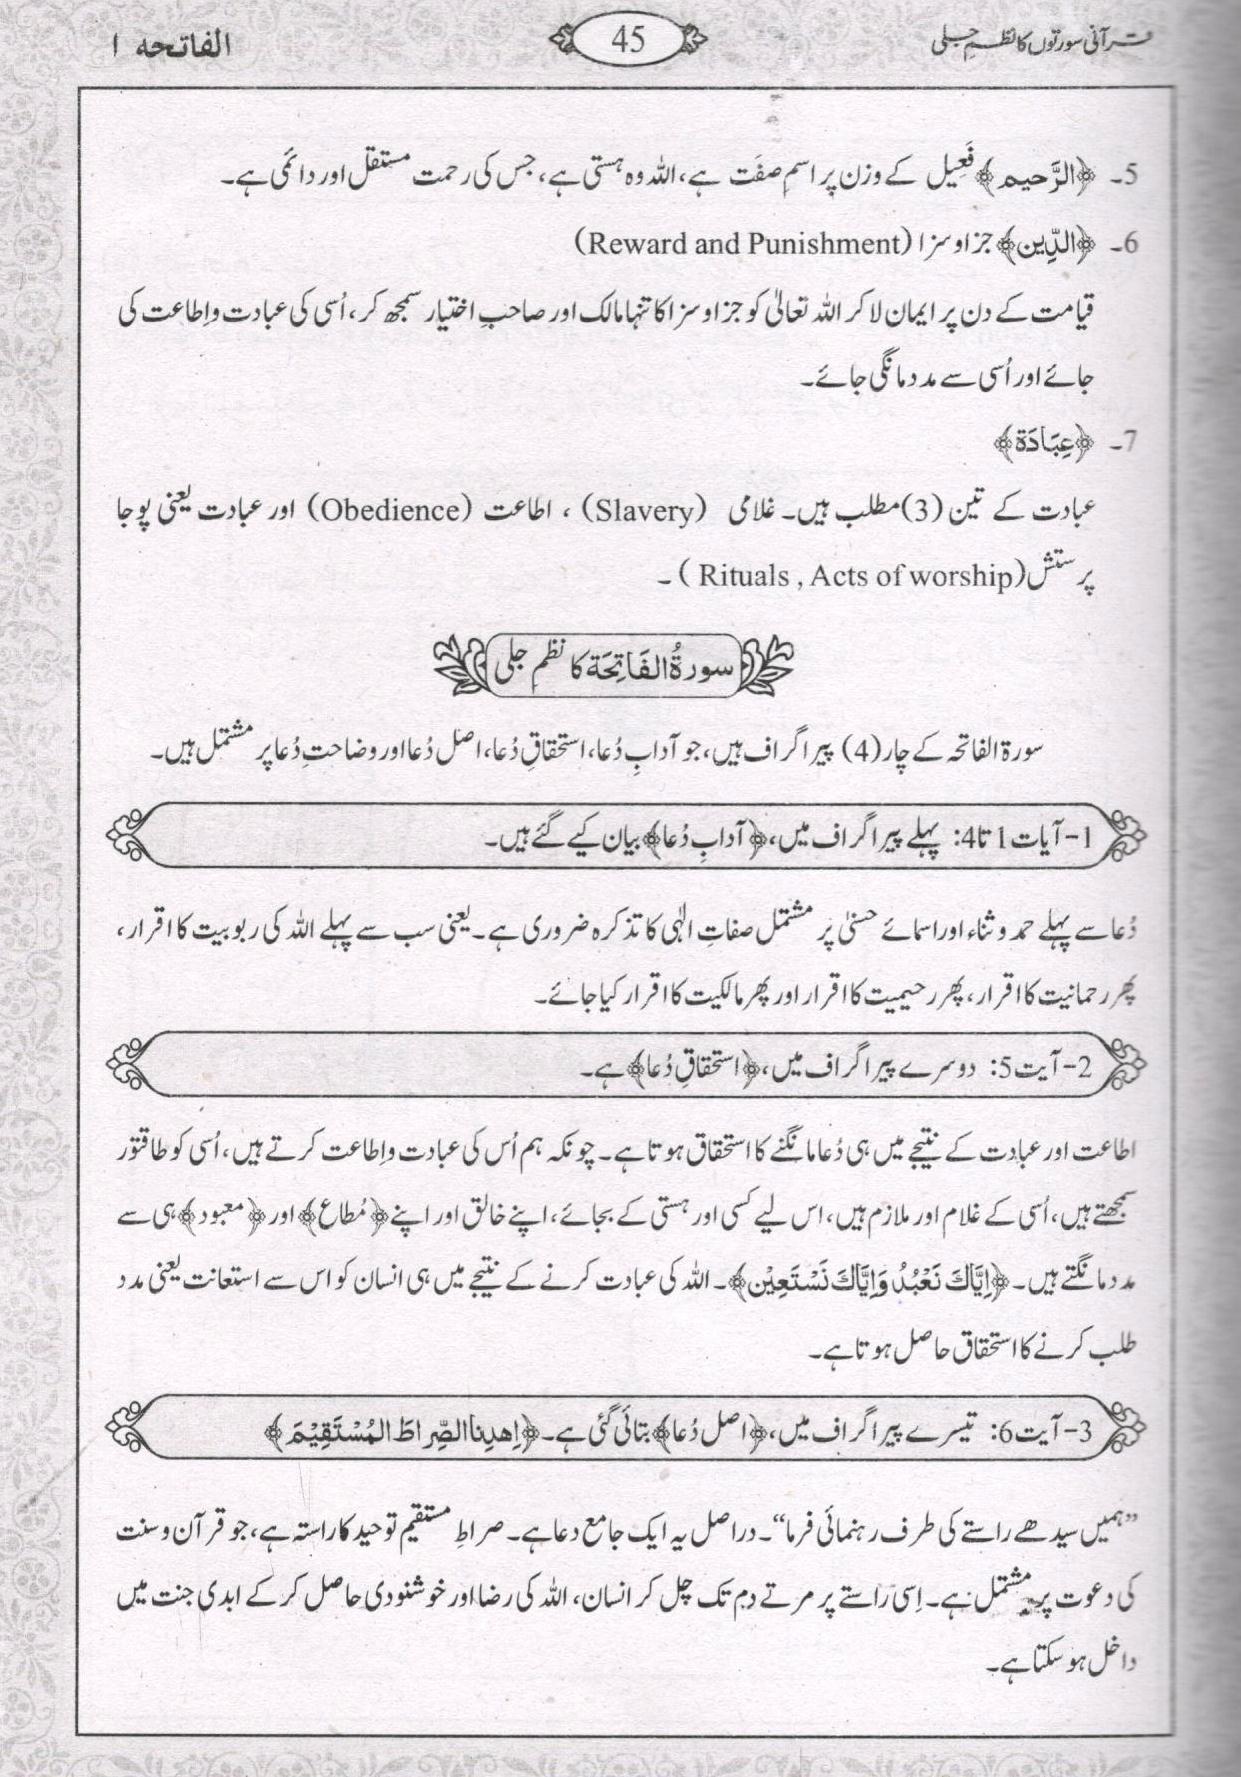 قرآنی سورتوں کا نظمِ جلی
45
الفاتحه ۱
5۔ ﴿الرَّحیم﴾ فَعِیل کے وزن پر اسمِ صفَت ہے، اللہ وہ ہستی ہے، جس کی رحمت مستقل اور دائمی ہے۔
6۔ ﴿الدِّین﴾ جزا و سزا (Reward and Punishment)
قیامت کے دن پر ایمان لا کر اللہ تعالیٰ کو جزا و سزا کا تنہا مالک اور صاحبِ اختیار سمجھ کر، اُسی کی عبادت و اِطاعت کی
جائے اور اُسی سے مدد مانگی جائے۔
7۔ ﴿عِبَادَة﴾
عبادت کے تین (3) مطلب ہیں۔ غلامی (Slavery) ، اطاعت (Obedience) اور عبادت یعنی پوجا
پرستش (Rituals , Acts of worship) ۔
سورةُ الفَاتِحَة کا نظمِ جلی
سورة الفاتحہ کے چار (4) پیراگراف ہیں، جو آدابِ دُعا، استحقاقِ دُعا، اصل دُعا اور وضاحتِ دُعا پر مشتمل ہیں۔
1- آیات 1 تا 4: پہلے پیراگراف میں، ﴿آدابِ دُعا﴾ بیان کیے گئے ہیں۔
دُعا سے پہلے حمد و ثناء اور اسمائے حسنیٰ پر مشتمل صفاتِ الٰہی کا تذکرہ ضروری ہے۔ یعنی سب سے پہلے اللہ کی ربوبیت کا اقرار،
پھر رحمانیت کا اقرار، پھر رحیمیت کا اقرار اور پھر مالکیت کا اقرار کیا جائے۔
2- آیت 5: دوسرے پیراگراف میں، ﴿استحقاقِ دُعا﴾ ہے۔
اطاعت اور عبادت کے نتیجے میں ہی دُعا مانگنے کا استحقاق ہوتا ہے۔ چونکہ ہم اُس کی عبادت و اِطاعت کرتے ہیں، اُسی کو طاقتور
سمجھتے ہیں، اُسی کے غلام اور ملازم ہیں، اس لیے کسی اور ہستی کے بجائے، اپنے خالق اور اپنے ﴿مُطاع﴾ اور ﴿معبود﴾ ہی سے
مدد مانگتے ہیں۔ ﴿اِیَّاكَ نَعْبُدُ وَاِیَّاكَ نَسْتَعِیْن﴾۔ اللہ کی عبادت کرنے کے نتیجے میں ہی انسان کو اس سے استعانت یعنی مدد
طلب کرنے کا استحقاق حاصل ہوتا ہے۔
3- آیت 6: تیسرے پیراگراف میں، ﴿اصل دُعا﴾ بتائی گئی ہے۔ ﴿اِھدِنا الصِّراطَ المُسْتَقِیْمَ﴾
”ہمیں سیدھے راستے کی طرف رہنمائی فرما“۔ دراصل یہ ایک جامع دعا ہے۔ صراطِ مستقیم توحید کا راستہ ہے، جو قرآن و سنت
کی دعوت پر مشتمل ہے۔ اِسی راستے پر مرتے دم تک چل کر انسان، اللہ کی رضا اور خوشنودی حاصل کر کے ابدی جنت میں
داخل ہو سکتا ہے۔